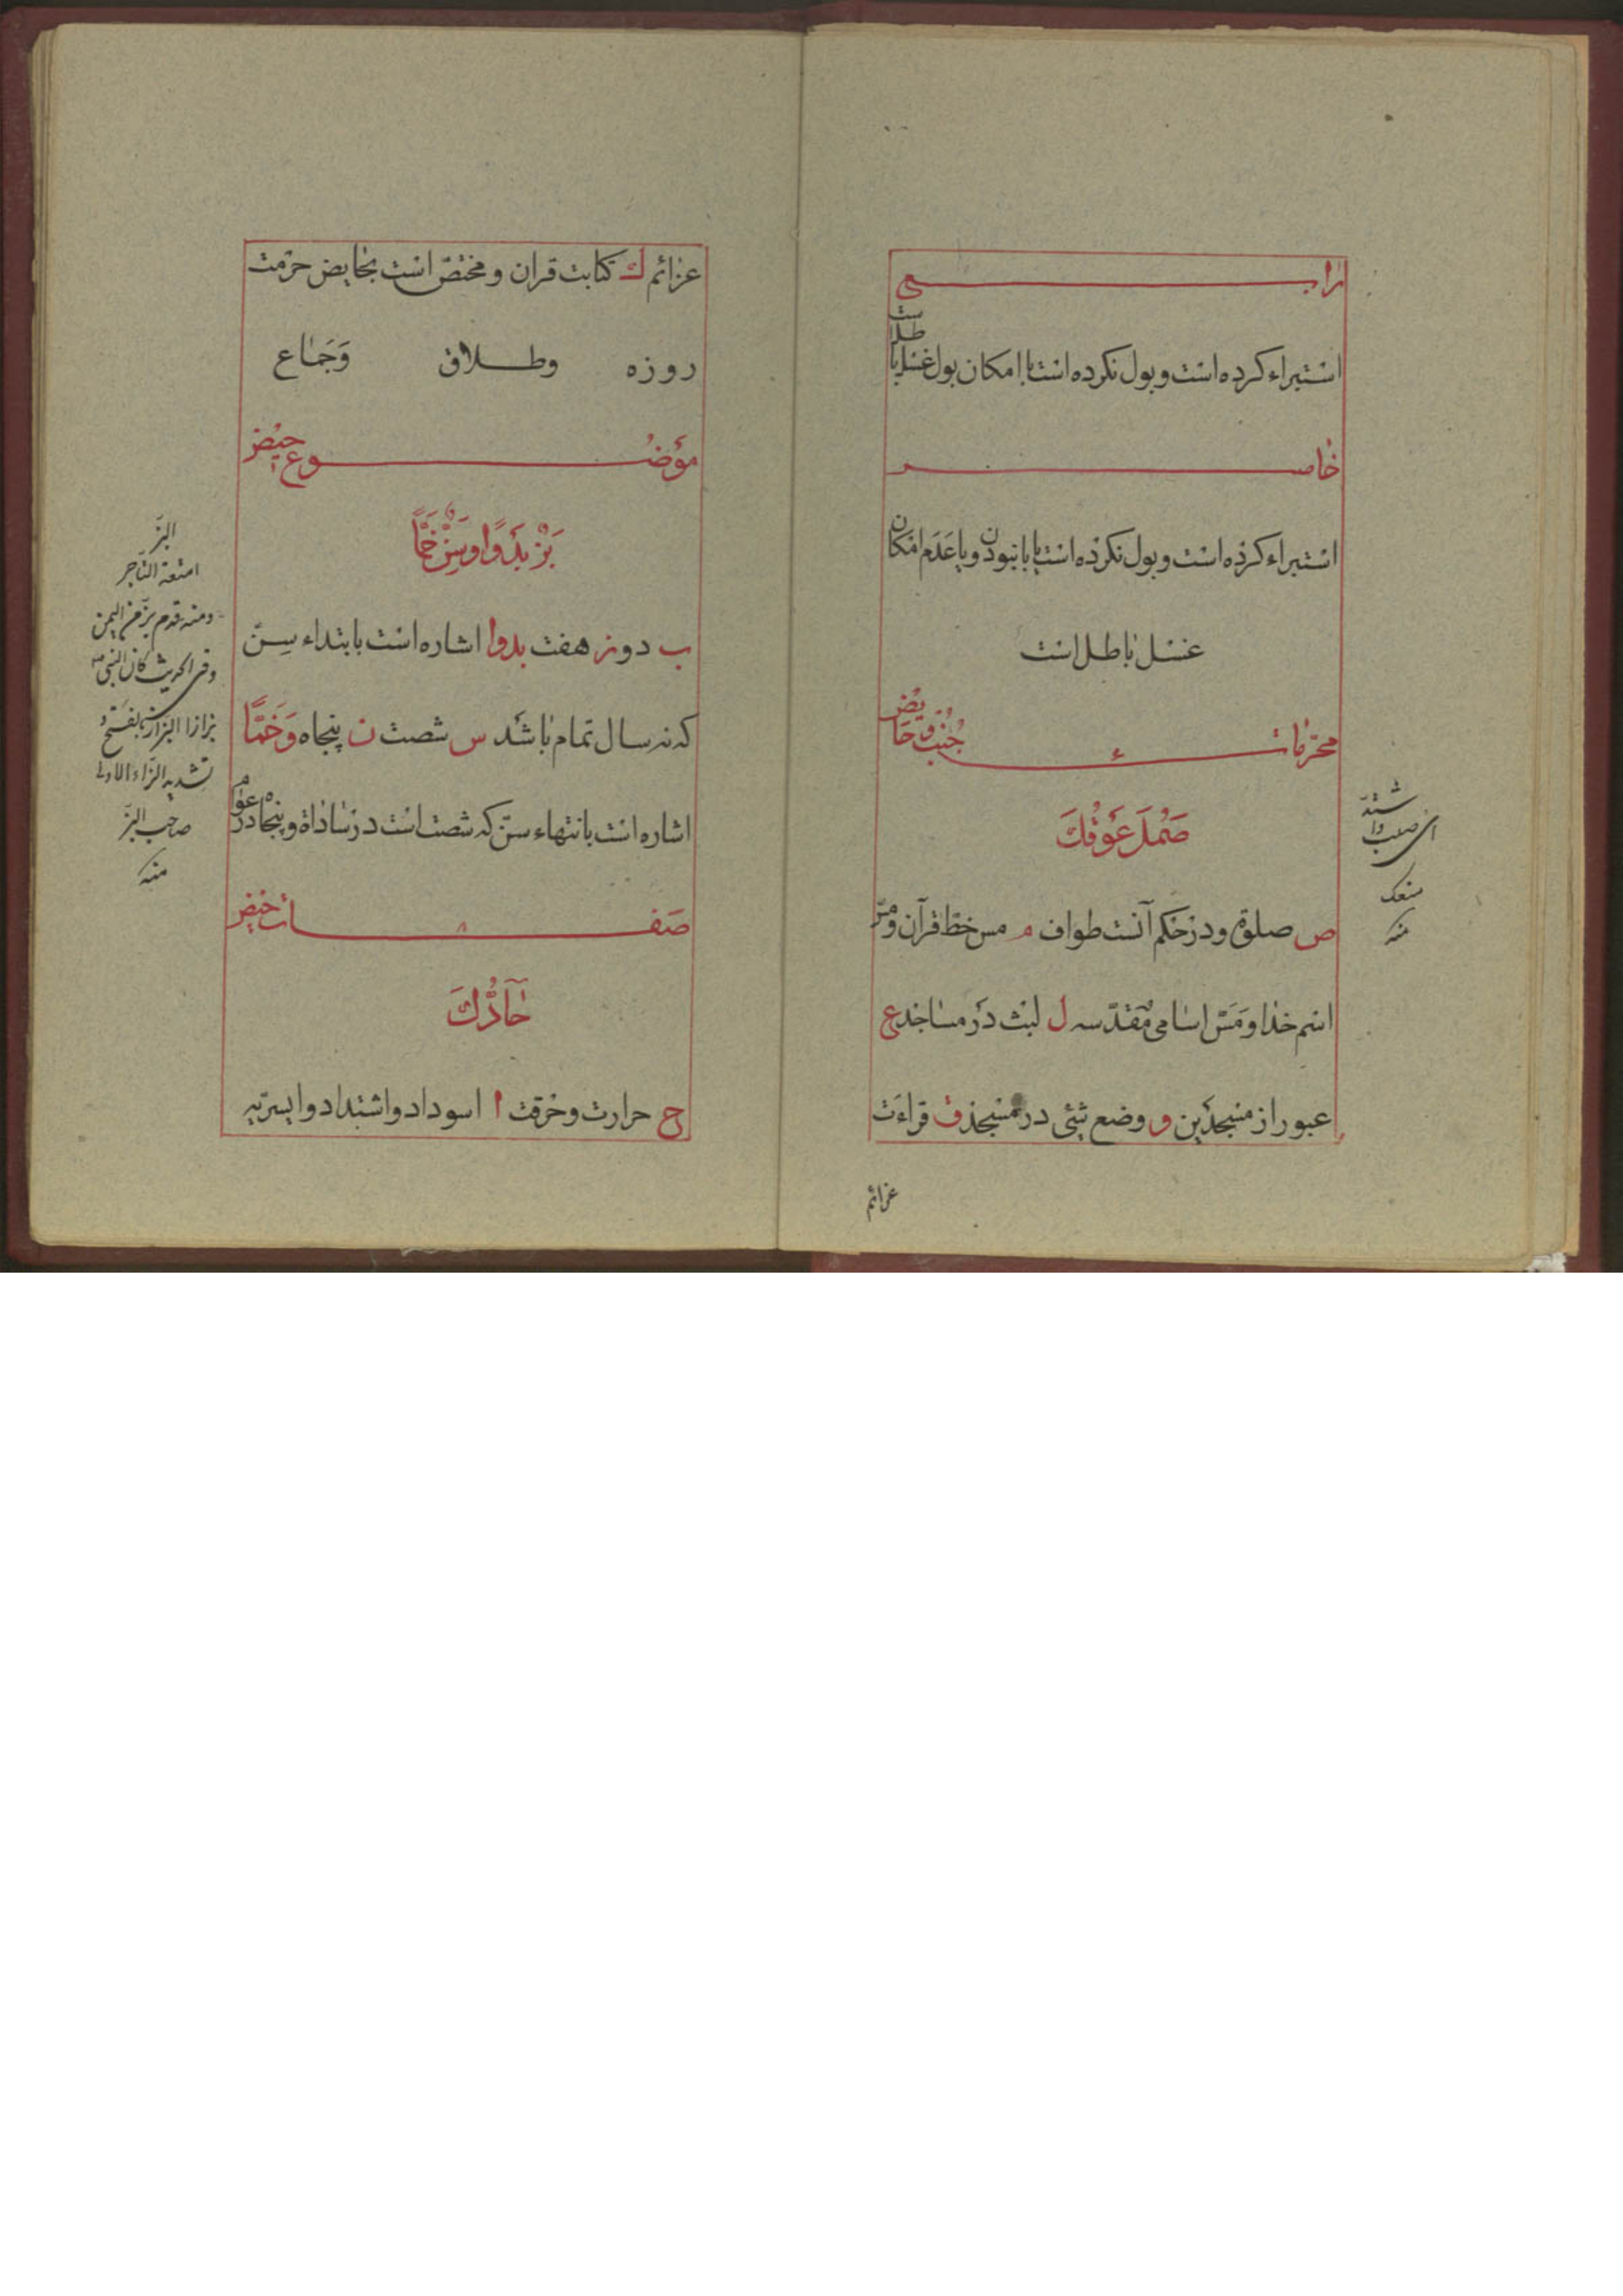 رابع
استبراء کرده است و بول نکرده است با امکان بول غسل باطل است
خامس
استبراء کرده است و بول نکرده است یا با نبودن و یا عدم امکان
غسل باطل است
محرّمات جنب و حایض
صَمْلَ عَوْقكَ
ص صلوة و در حکم آنست طواف م مس خط قرآن و مسّ
اسم خدا و مَسّ اسامی مقدّسه ل لبث در مساجد ع
عبور از مسجدین و وضع شئی در مسجد ق قراءت
عزائم
اشتدّ
ای صعب و
منعک
منه
عزائم ك کتابت قران و مختصّ است بحایض حرمت
روزه وطلاق وَجَماع
موضوع حیض
بَزْ بَدْوًا وسِنّ خَتْمًا
ب دو ز هفت بدوا اشاره است بابتداء سِنّ
که نه سال تمام باشد س شصت ن پنجاه وَخَتْمًا
اشاره است بانتهاء سنّ که شصت است در ساداة و پنجاه در عوام
صفات حیض
حَآدُّكَ
ح حرارت و حرقت ا اسوداد و اشتداد و ایسریه
البزّ
امتعة التّاجر
ومنه قدم بزّ من الیمن
وفی الحدیث کان النبی ص
بزازا البزاز بالفتح و
تشدید الزاء الاولی
صاحب البزّ
منه